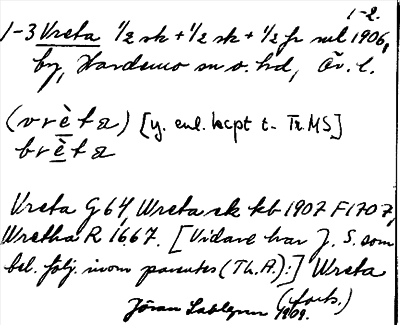 1-2.
1-3 Vreta 1/2 sk + 1/2 sk + 1/2 fr utl 1906,
by, Hardemo sn o. hd, Ör. l.
(vrèta) [y. enl. kcpt t. Th. MS]
brèta
Vreta G 64, Wreta sk kb 1907 F 1707,
Wretha R 1667. [Vidare har J. S. som
bel. följ. inom parentes (Th. A.):] Wreta
(forts.)
Jöran Sahlgren 1909.